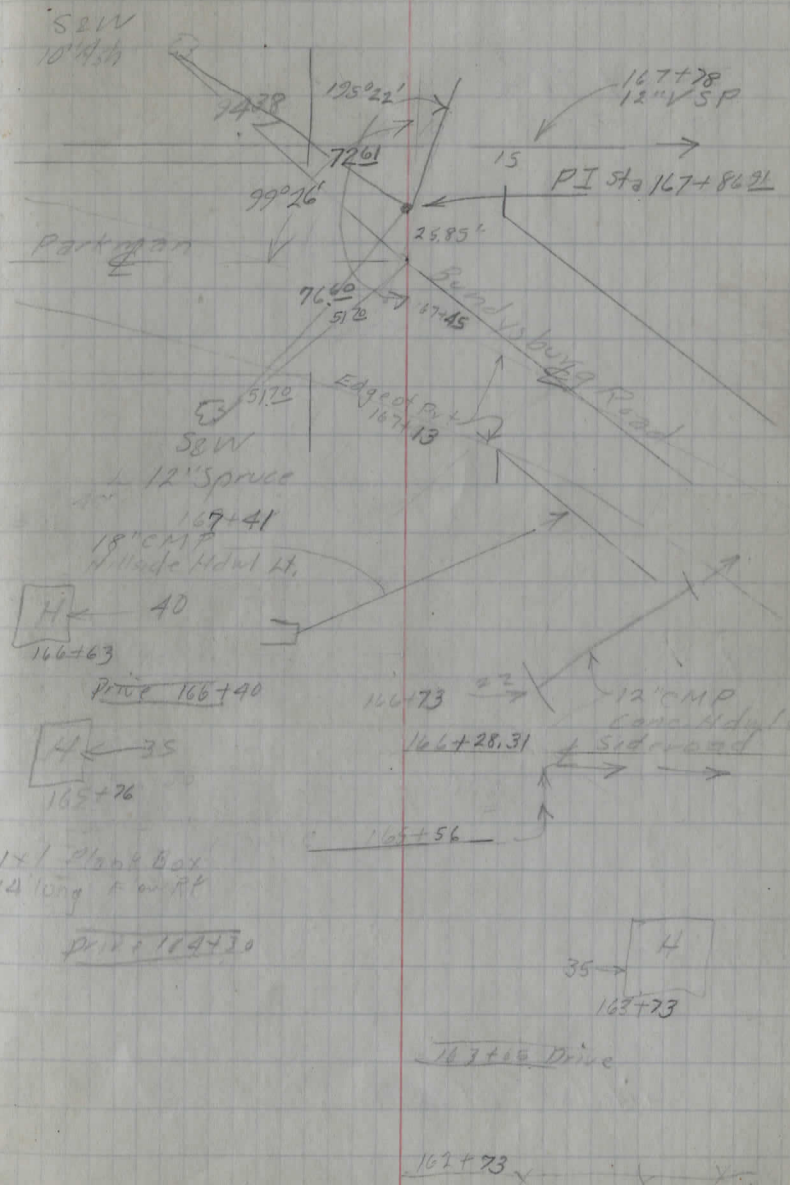 S&W
10" Ash
94.38
195°22'
167+78
12" VSP
15
72.61
PI Sta 167+86.91
99°26'
25.85'
Parkman
76.60
51.70
167+45
Bundysburg Road
51.70
Edge of Pvt
167+13
S&W
12" Spruce
167+41
18" CMP
Hdwl Lt.
H
40
166+63
Drive 166+40
166+73
22
12" CMP
Conc Hdwl
166+28.31
Sideroad
H
35
165+76
165+56
1x1 Plank Box
long Flow Rt
Drive 164+30
H
35
163+73
163+65 Drive
162+73